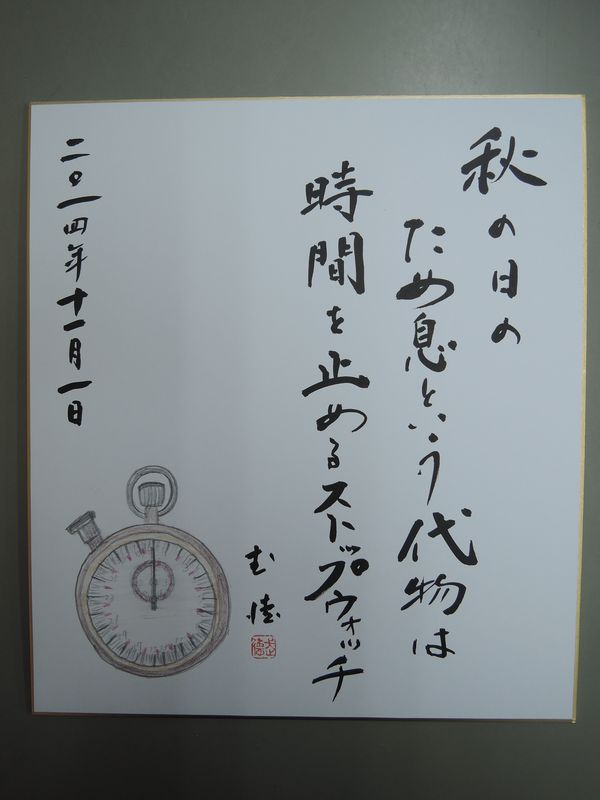 秋の日の
ため息という代物は
時間を止めるストップウォッチ
二〇一四年十一月一日